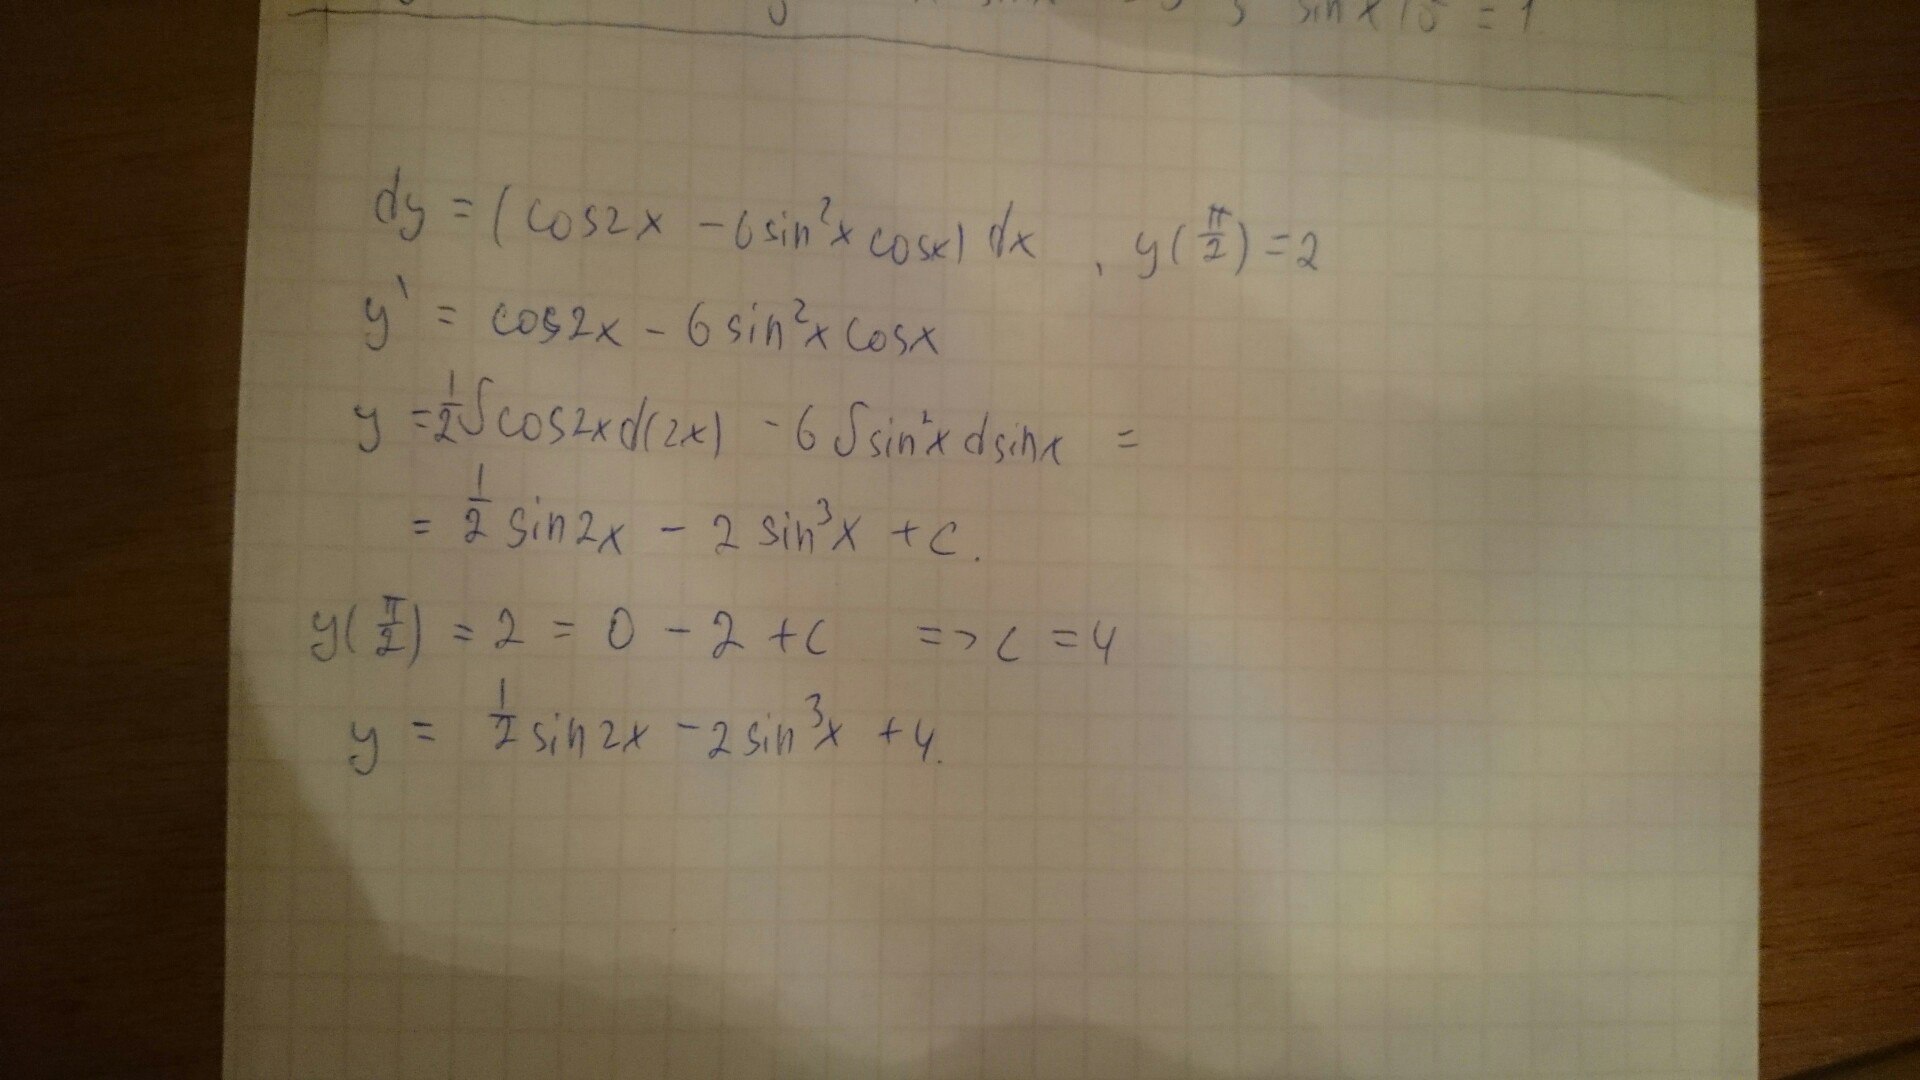 sin x = 1
dy = (cos2x - 6 sin²x cosx) dx , y(π/2) = 2
y' = cos2x - 6 sin²x cosx
y = 1/2 ∫cos2x d(2x) - 6 ∫sin²x dsinx =
= 1/2 sin2x - 2 sin³x + c.
y(π/2) = 2 = 0 - 2 + c => c = 4
y = 1/2 sin2x - 2 sin³x + 4.